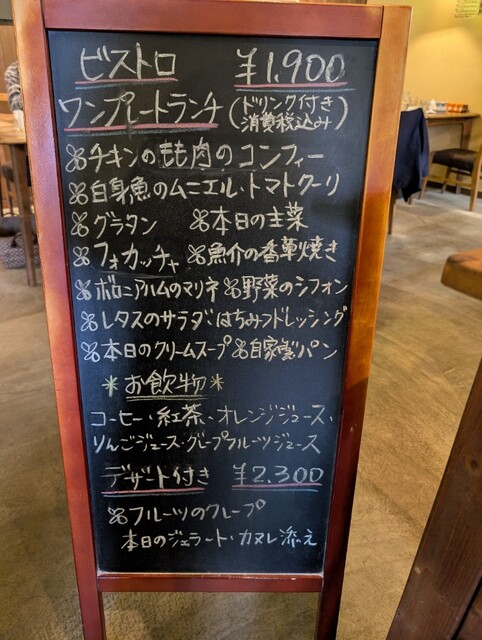 ビストロ ¥1,900
ワンプレートランチ (ドリンク付き 消費税込み)
チキンのもも肉のコンフィー
白身魚のムニエル・トマトクーリ
グラタン 本日の主菜
フォカッチャ 魚介の香草焼き
ボロニアハムのマリネ 野菜のシフォン
レタスのサラダ はちみつドレッシング
本日のクリームスープ 自家製パン
*お飲物*
コーヒー・紅茶・オレンジジュース・
りんごジュース・グレープフルーツジュース
デザート付き ¥2,300
フルーツのクレープ
本日のジェラート・カヌレ添え